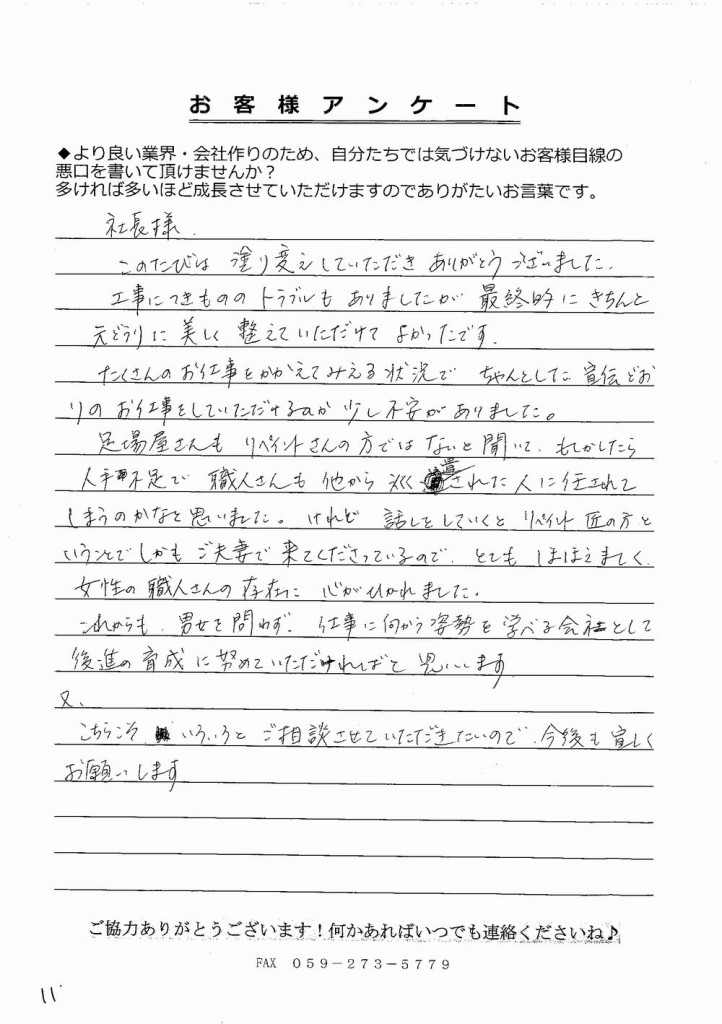 お客様アンケート
◆より良い業界・会社作りのため、自分たちでは気づけないお客様目線の
悪口を書いて頂けませんか？
多ければ多いほど成長させていただけますのでありがたいお言葉です。
社長様
このたびは 塗り変えしていただき ありがとうございました。
工事につきもののトラブルも ありましたが 最終的に きちんと
元どうりに 美しく 整えていただけて よかったです。
たくさんのお仕事をかかえてみえる状況で ちゃんとした 宣伝どお
りの お仕事をしていただけるのか 少し不安がありました。
足場屋さんも リペイントさんの方では ないと聞いて、もしかしたら
人手不足で 職人さんも 他から 派遣された人に任されて
しまうのかなと思いました。けれど 話しをしていくと リペイント匠の方と
いうことでしかも ご夫妻で 来てくださっているので、とても ほほえましく、
女性の職人さんの存在に 心がひかれました。
これからも、男女を問わず、仕事に向かう姿勢を 学べる会社として
後進の育成に努めていただければと 思います
又、
こちらこそ いろいろと ご相談させていただきたいので、今後も宜しく
お願いします
ご協力ありがとうございます！何かあればいつでも連絡くださいね♪
FAX 059－273－5779
11